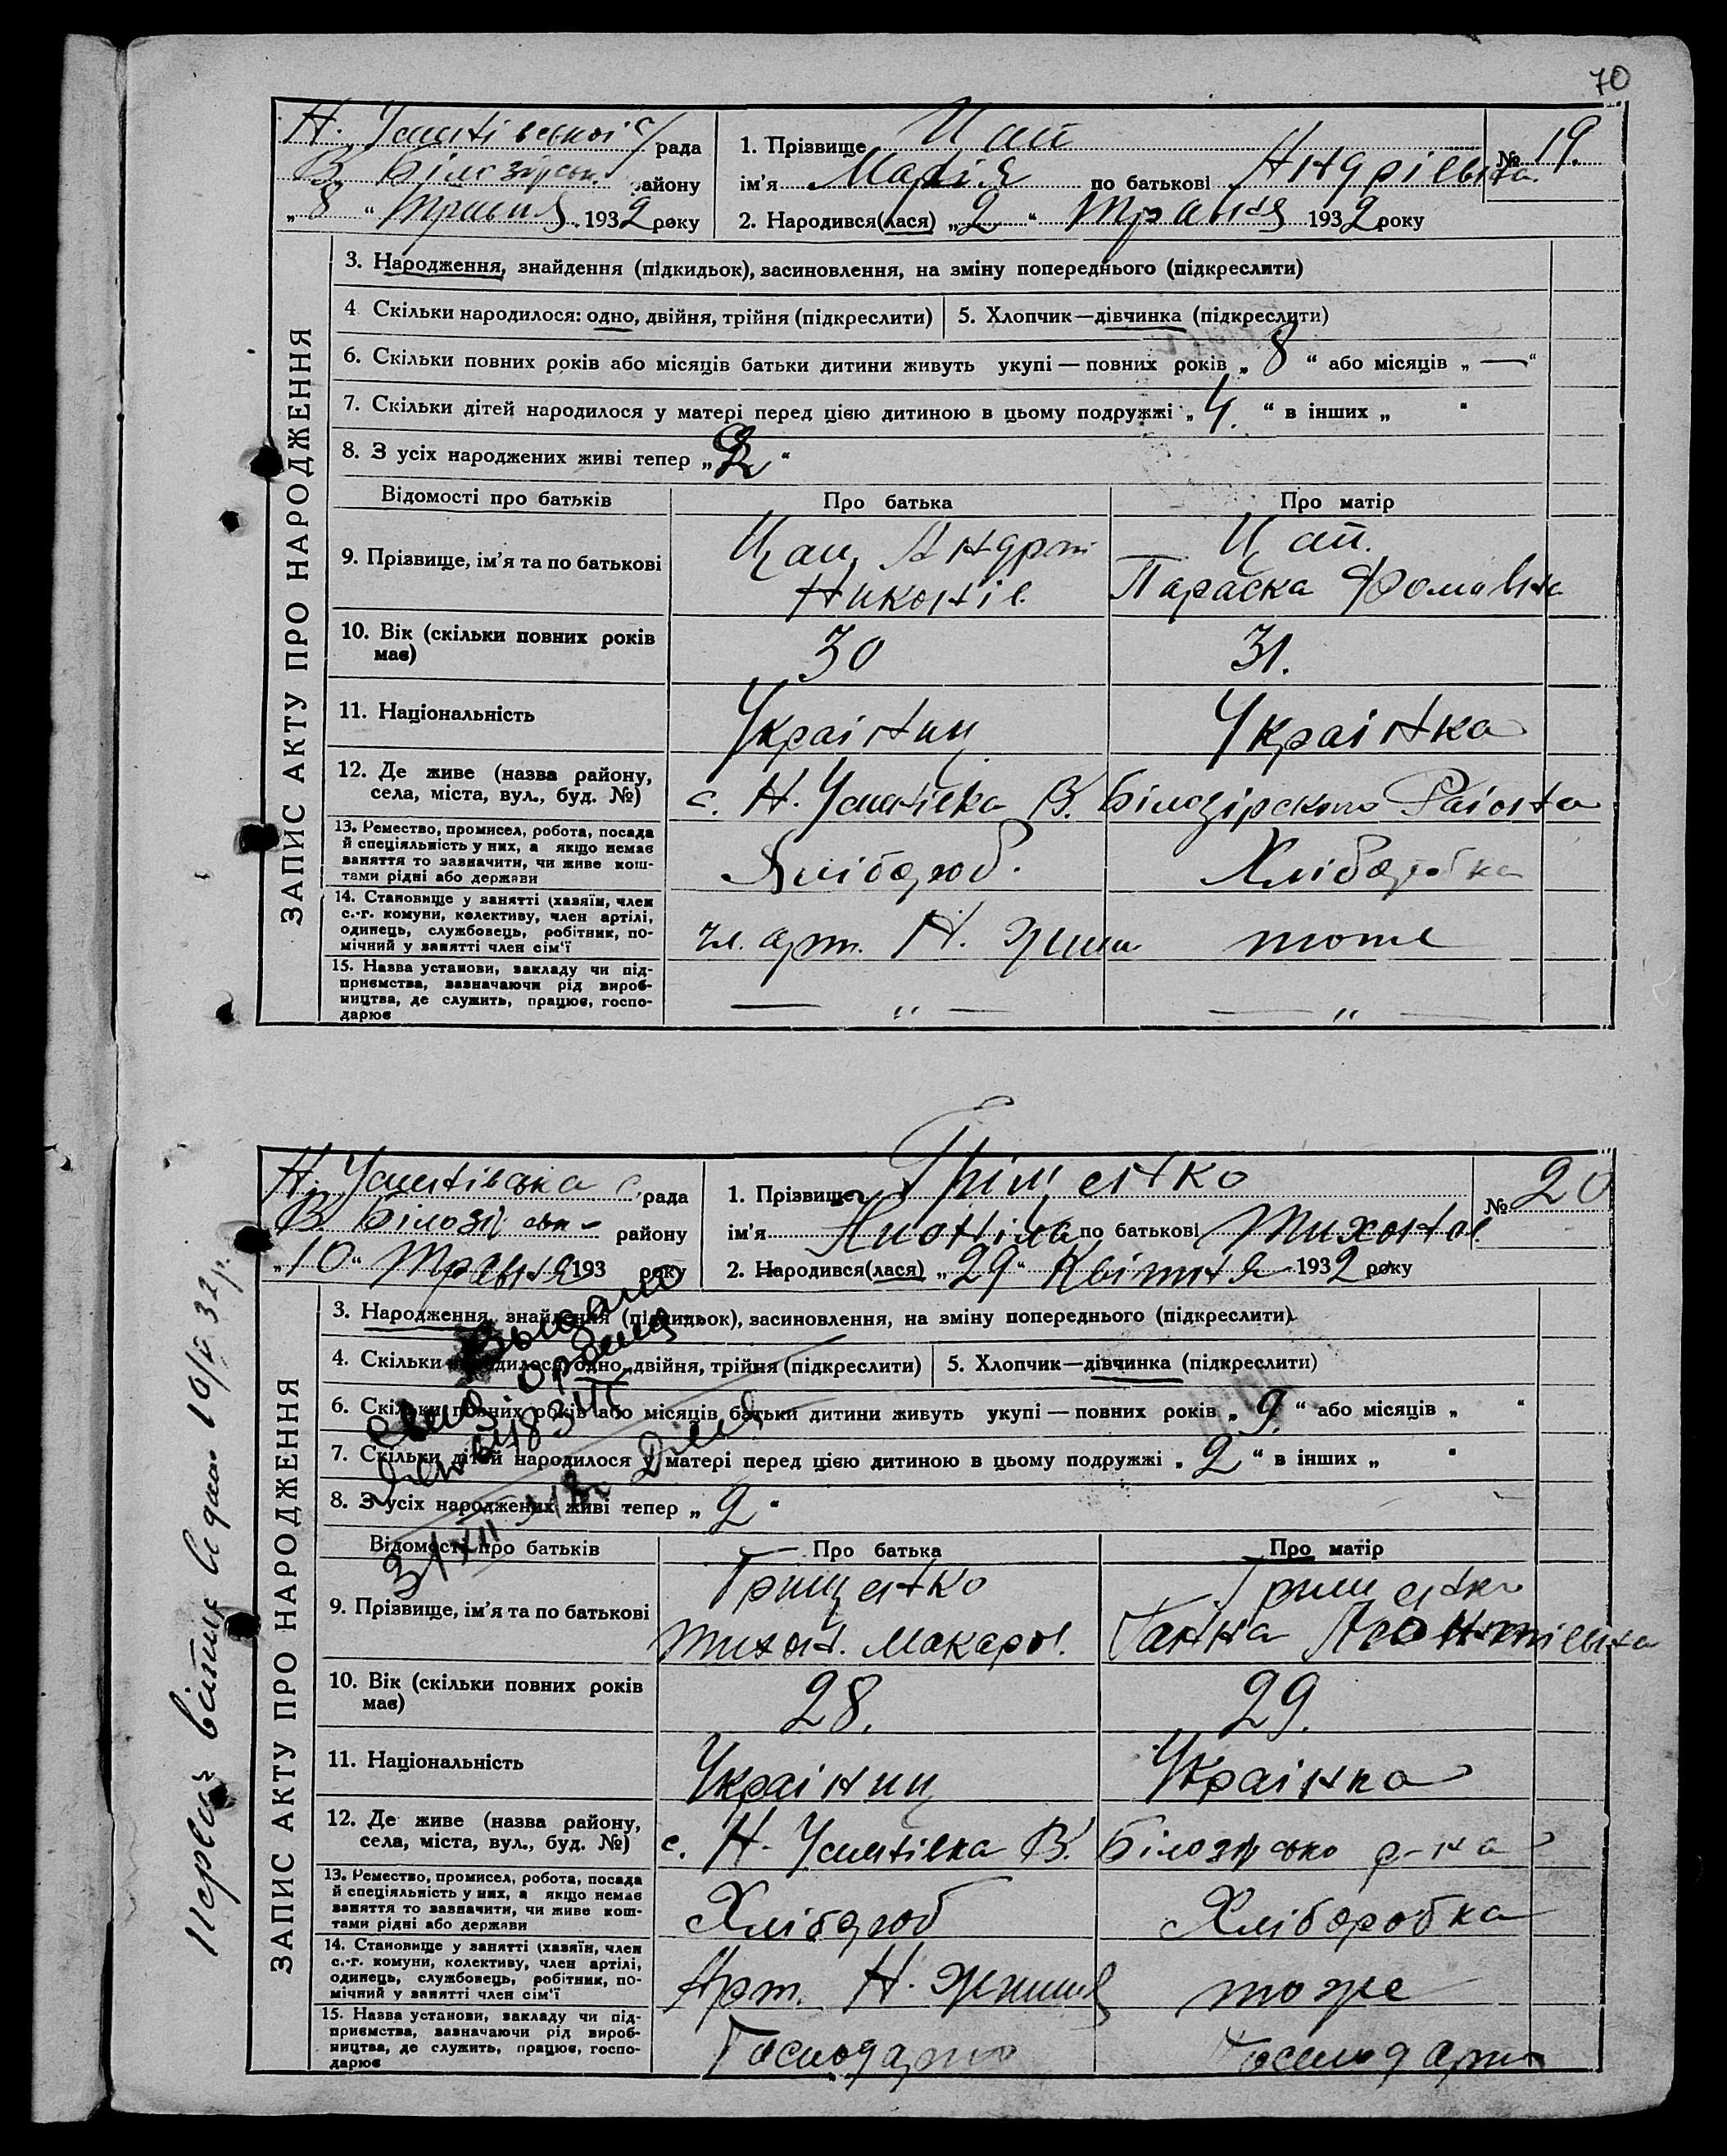 70
Н. Устівської с/рада
В. Білозірськ. району
„8“ Травня 1932 року
1. Прізвище Цап
№ 19.
ім'я Марія по батькові Андріевна.
2. Народився(лася) „2“ Травня 1932 року
ЗАПИС АКТУ ПРО НАРОДЖЕННЯ
3. Народження, знайдення (підкидьок), засиновлення, на зміну попереднього (підкреслити)
4 Скільки народилося: одно, двійня, трійня (підкреслити)
5. Хлопчик—дівчинка (підкреслити)
6. Скільки повних років або місяців батьки дитини живуть укупі — повних років „ 8 “ або місяців „ — “
7. Скільки дітей народилося у матері перед цією дитиною в цьому подружжі „ 4. “ в інших „ “
8. З усіх народжених живі тепер „ “
Відомості про батьків
Про батька
Про матір
9. Прізвище, ім'я та по батькові
Цап Андрій
Никонів.
Цап.
Параска Фомовна
10. Вік (скільки повних років
має)
30
31.
11. Національність
Українец
Українка
12. Де живе (назва району,
села, міста, вул., буд. №)
с. Н. В. Білозірского Району
13. Ремество, промисел, робота, посада
й спеціяльність у них, а якщо немає
заняття то зазначити, чи живе кош-
тами рідні або держави
Хлібороб.
Хліборобка
14. Становище у занятті (хазяїн, член
с.-г. комуни, колективу, член артілі,
одинець, службовець, робітник, по-
мічний у занятті член сім'ї
чл. арт. Н.
тоже
15. Назва установи, закладу чи під-
приємства, зазначаючи рід вироб-
ництва, де служить, працює, госпо-
дарює
— „ —
— „ —
Н. с. рада
В. району
„10“ Травня 193 року
1. Прізвище Гріщенко
№ 20
ім'я по батькові Тихонов.
2. Народився(лася) „29“ Квітня 1932 року
ЗАПИС АКТУ ПРО НАРОДЖЕННЯ
3. Народження, знайдення (підкидьок), засиновлення, на зміну попереднього (підкреслити)
4. Скільки народилося: одно, двійня, трійня (підкреслити)
5. Хлопчик—дівчинка (підкреслити)
6. Скільки повних років або місяців батьки дитини живуть укупі — повних років „ 9. “ або місяців „ “
7. Скільки дітей народилося у матері перед цією дитиною в цьому подружжі „ 2 “ в інших „ “
8. З усіх народжених живі тепер „ 2 “
Відомості про батьків
Про батька
Про матір
9. Прізвище, ім'я та по батькові
Грищенко
Тихон. Макаров.
Грищенко
Ганна
10. Вік (скільки повних років
має)
28.
29.
11. Національність
Українец
Українка
12. Де живе (назва району,
села, міста, вул., буд. №)
с. Н. В. р-на
13. Ремество, промисел, робота, посада
й спеціяльність у них, а якщо немає
заняття то зазначити, чи живе кош-
тами рідні або держави
Хлібороб
Хліборобка
14. Становище у занятті (хазяїн, член
с.-г. комуни, колективу, член артілі,
одинець, службовець, робітник, по-
мічний у занятті член сім'ї
Арт. Н.
тоже
15. Назва установи, закладу чи під-
приємства, зазначаючи рід вироб-
ництва, де служить, працює, госпо-
дарює